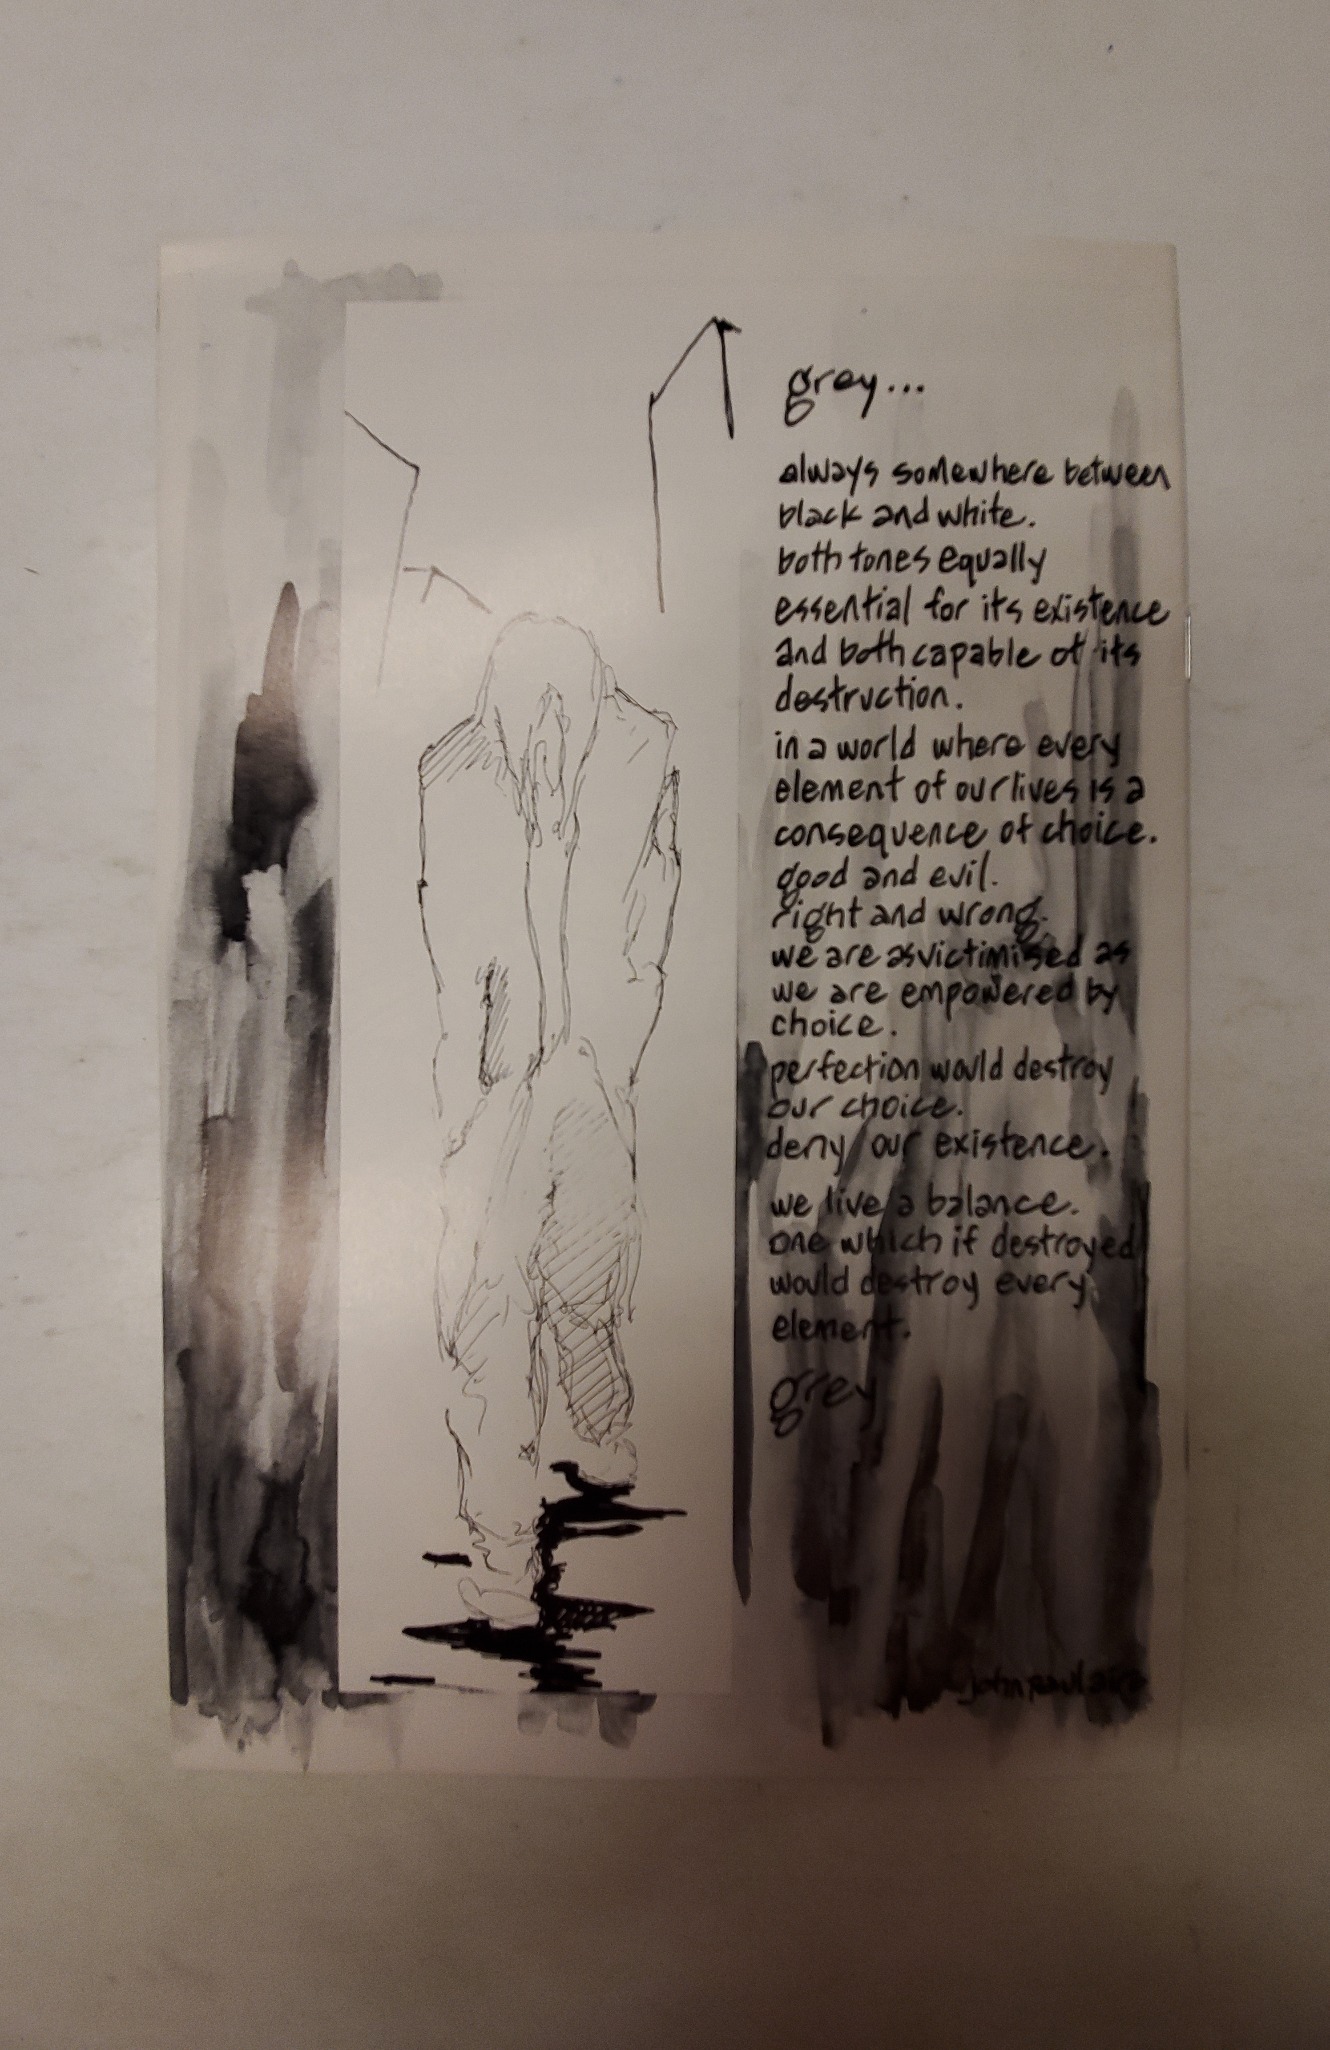 grey...
always somewhere between
black and white.
both tones equally
essential for its existence
and both capable of its
destruction.
in a world where every
element of our lives is a
consequence of choice.
good and evil.
right and wrong.
we are as victimised as
we are empowered by
choice.
perfection would destroy
our choice.
deny our existence.
we live a balance.
one which if destroyed
would destroy every
element.
grey
john paul